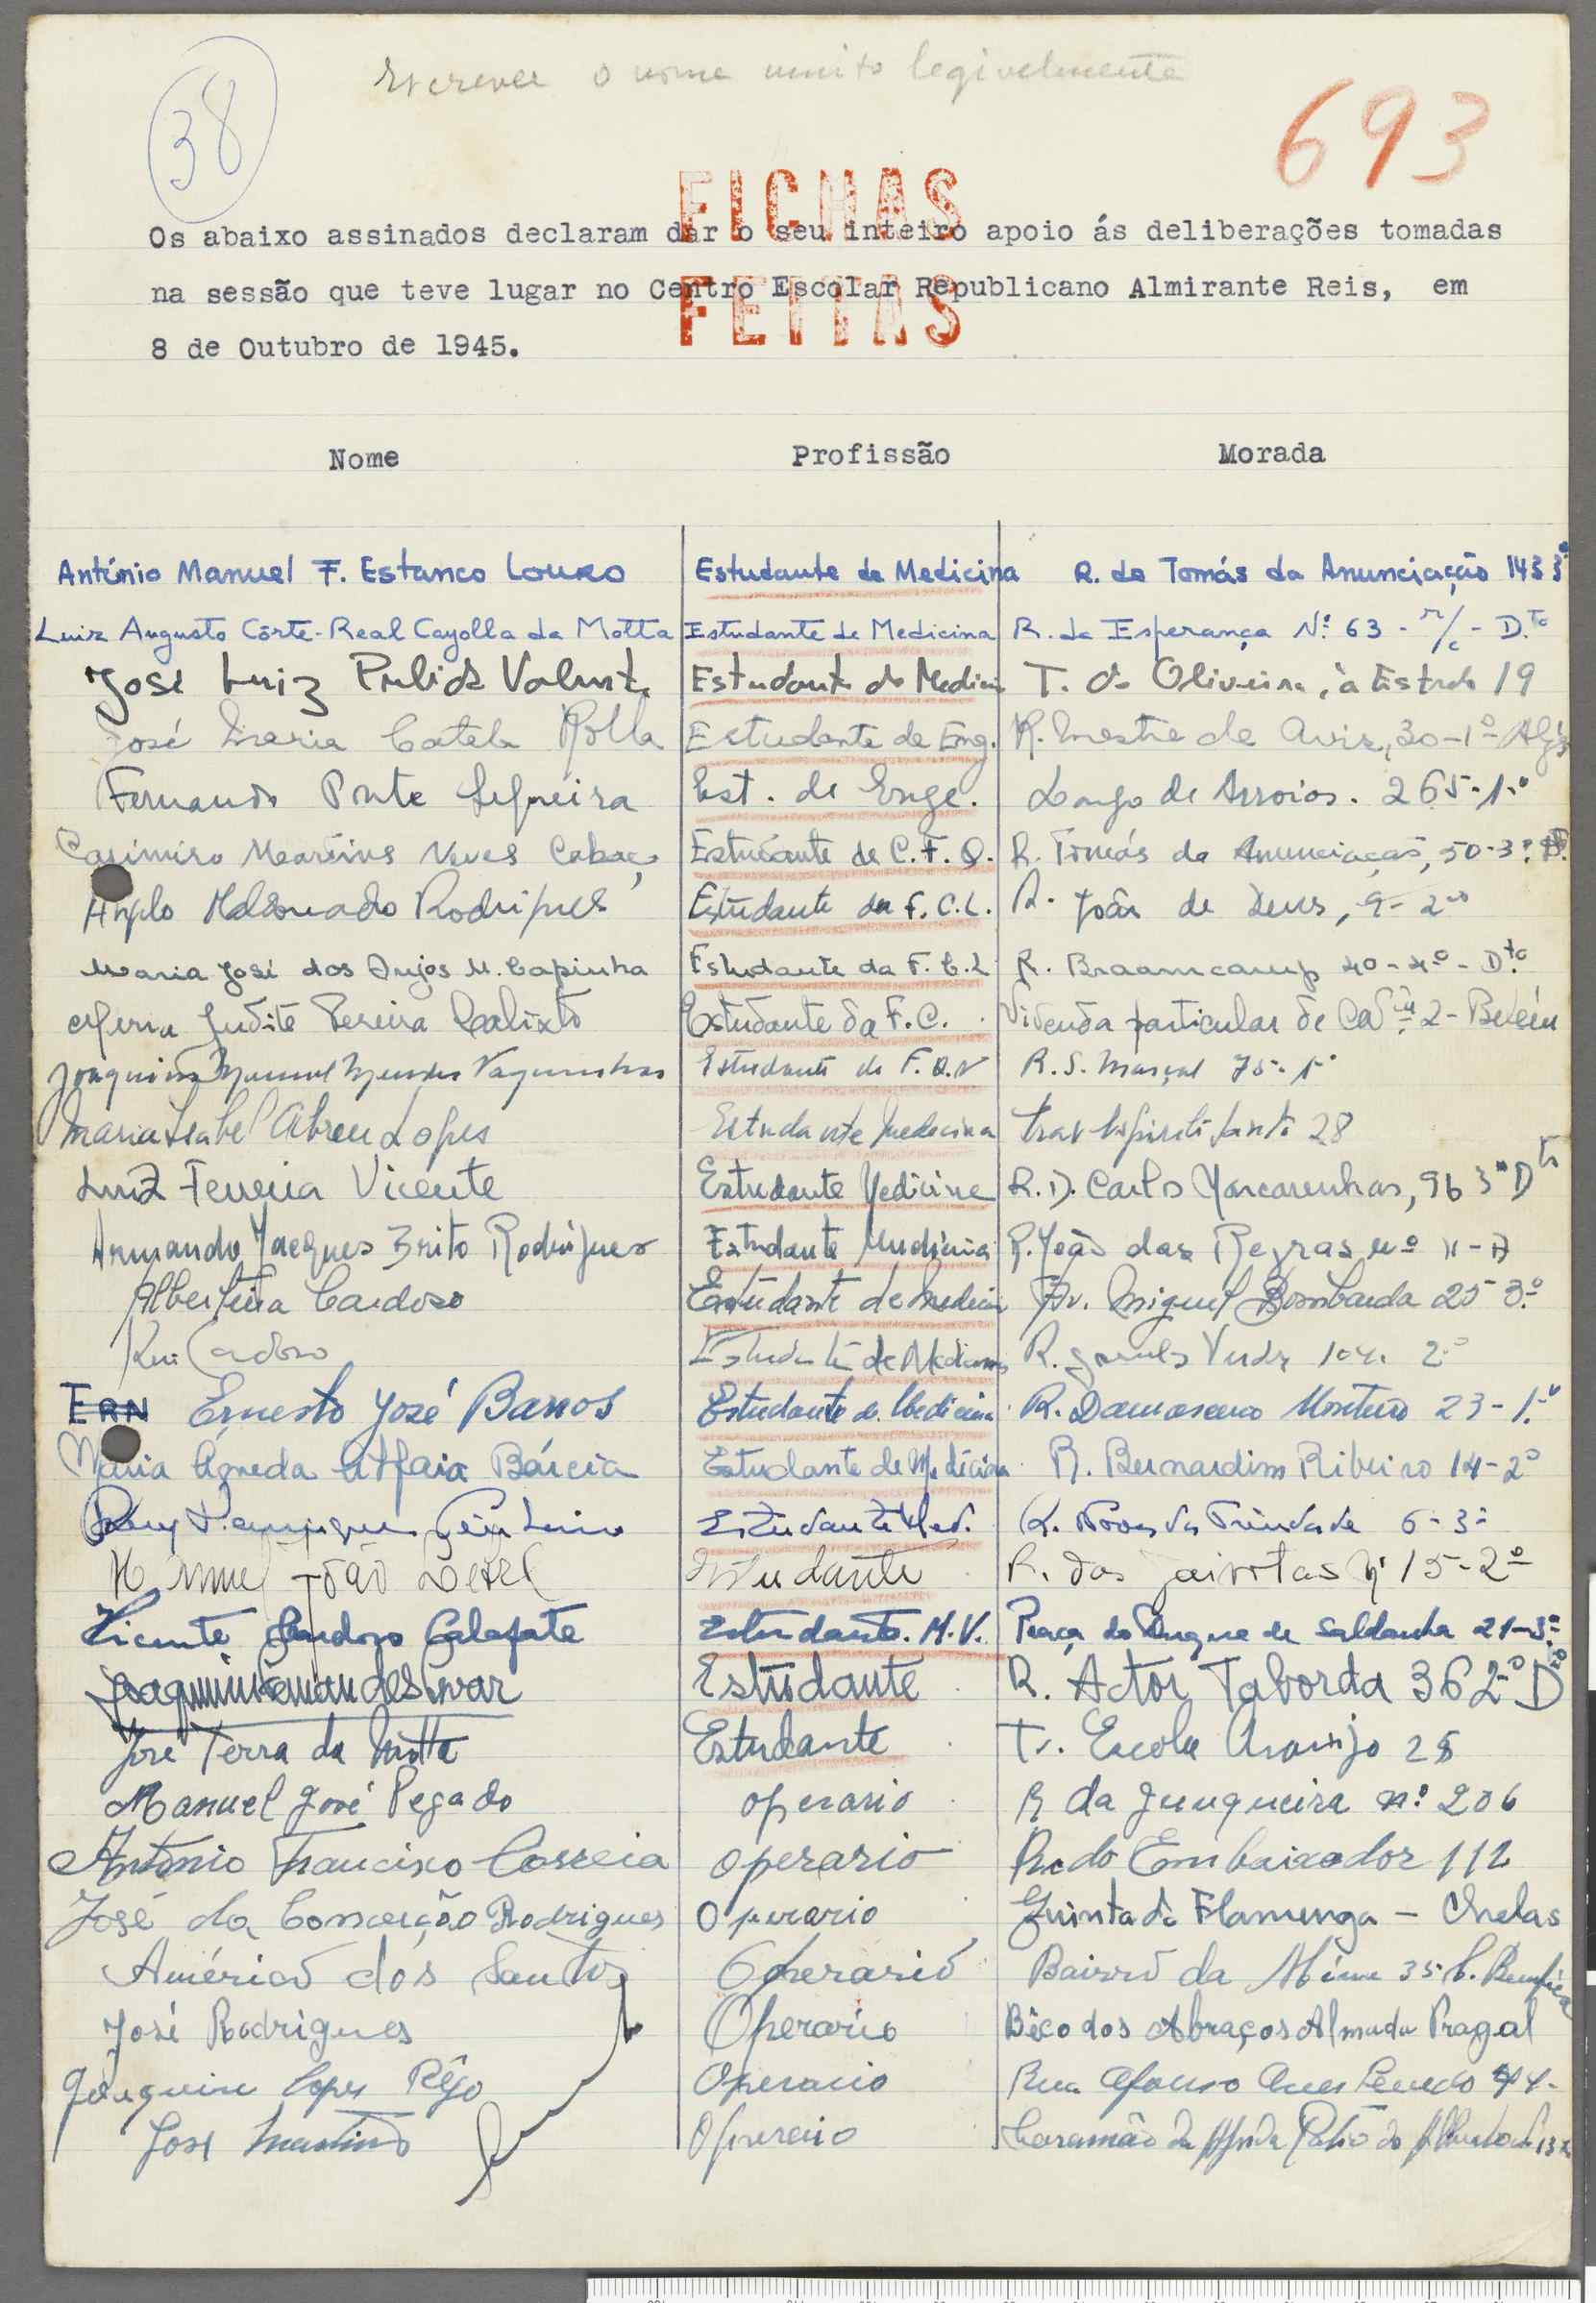 Escrever o nome muito legivelmente
38
693
FICHAS
FEITAS
Os abaixo assinados declaram dar o seu inteiro apoio ás deliberações tomadas
na sessão que teve lugar no Centro Escolar Republicano Almirante Reis, em
8 de Outubro de 1945.
Nome Profissão Morada
António Manuel F. Estanco Louro Estudante de Medicina R. de Tomás da Anunciação 143 3º
Luiz Augusto Côrte-Real Cayolla da Motta Estudante de Medicina R. da Esperança Nº 63 - r/c - D.to
José Luiz Pulido Valente Estudante de Medicina T. da Oliveira, à Estrela 19
José Maria Catela Rolla Estudante de Eng. R. Mestre de Aviz, 30-1º Algés
Fernando Ponte Sequeira Est. de Enge. Largo de Arroios. 265-1.º
Casimiro Martins Neves Cabaço Estudante de C.F.Q. R. Tomás da Anunciação, 50-3º
Maldonado Rodrigues Estudante da F.C.L. R. João de Deus, 9-2º
Maria José dos Anjos M. Capinha Estudante da F.C.L R. Braamcamp 40-4º-D.to
Judite Pereira Calixto Estudante da F.C. Vivenda particular de 2-Belém
Joaquim Manuel Mendes Estudante de R. S. Marçal 75-1º
Maria Isabel Abreu Lopes Estudante Medicina Trav Espirito Santo 28
Luiz Ferreira Vicente Estudante Medicina R. D. Carlos Mascarenhas, 96 3º Dto
Armando Jacques Brito Rodrigues Estudante Medicina R. João das Regras nº 11-A
Albertina Cardoso Estudante de Medicina Av. Miguel Bombarda 25 3º
Rui Cardoso Estudante de Medicina R. 104 2º
ERN Ernesto José Barros Estudante de Medicina R. Damasceno Monteiro 23-1.º
Maria Águeda Atfaia Bárcia Estudante de Medicina R. Bernardim Ribeiro 14-2º
Estudante Med. R. Nova da Trindade 6-3º
Manuel João Estudante R. das Gaivotas Nº 15-2º
Vicente Cardoso Calafate Estudante M.V. Praça do Duque de Saldanha 21-3º
Joaquim Estudante R. Actor Taborda 36 2º Dto
José Terra da Motta Estudante Tr. Escola Araujo 28
Manuel José Pegado operario R da Junqueira nº 206
António Francisco Correia operario R. do Embaixador 112
José da Conceição Rodrigues Operario Quinta da Flamenga - Chelas
Américo dos Santos Operario Bairro da Mina 35 Benfica
José Rodrigues Operario Bêco dos Abraços Almada Pragal
Joaquim Lopes Rêgo Operario Rua Afonso Anes Penedo
José Martins Operario Caramão da Ajuda Patio do